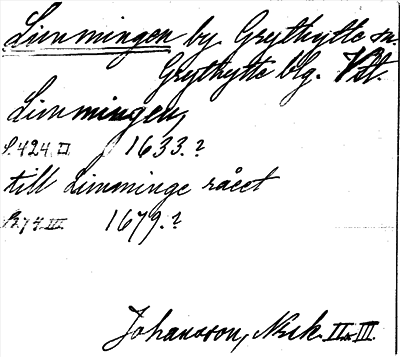 Limmingen by Grythytte sn.
Grythytte blg. Vstl.
Limmingen,
S. 424. II. 1633.?
till Limminge råået
S. 74. III. 1679.?
Johansson, Nork. II o. III.